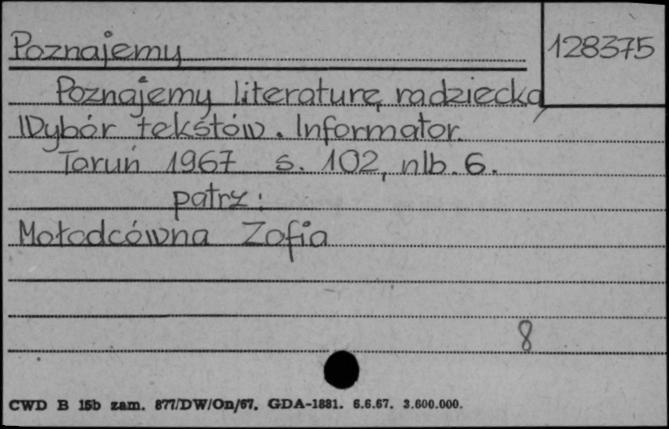 Poznajemy
128375
Poznajemy literaturę radziecką
Wybór tekstów. Informator.
Toruń 1967 s. 102, nlb. 6.
patrz:
Mołodcówna Zofia
8
CWD B 15b zam. 877/DW/On/67. GDA-1881. 6.6.67. 3.600.000.